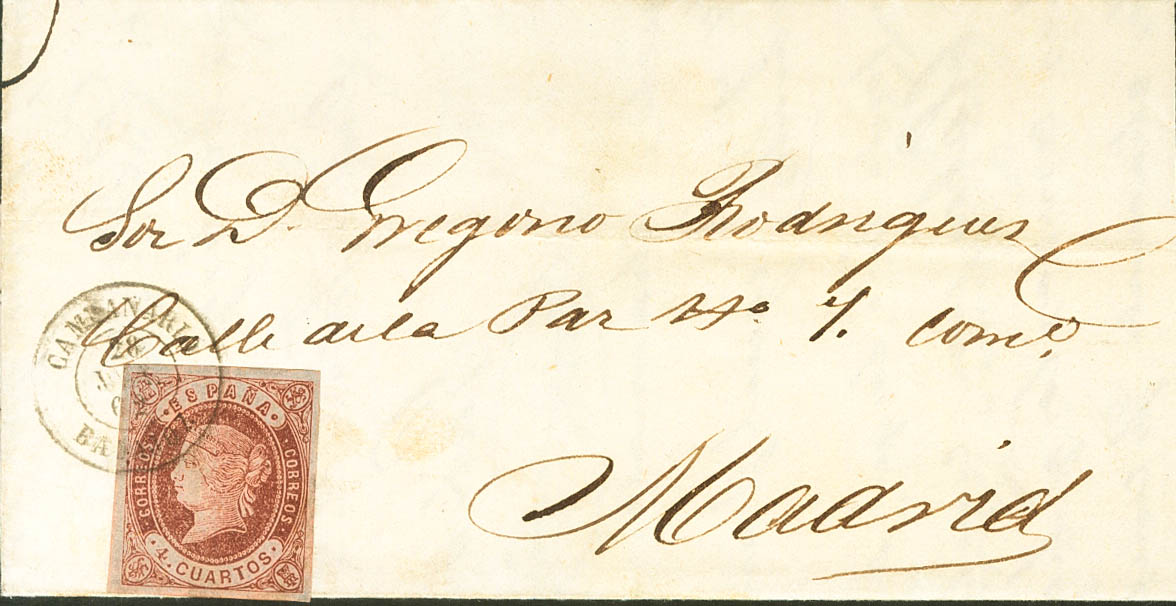 Sor D. Gregorio Rodriguez
Calle de la Paz No. 7. Como.
Madrid
ESPAÑA
CORREOS
CORREOS
4. CUARTOS